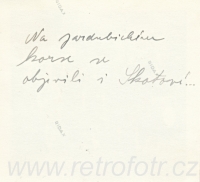 Na pardubickém
korse se
objevili i Skotové...
www.retrofotr.cz